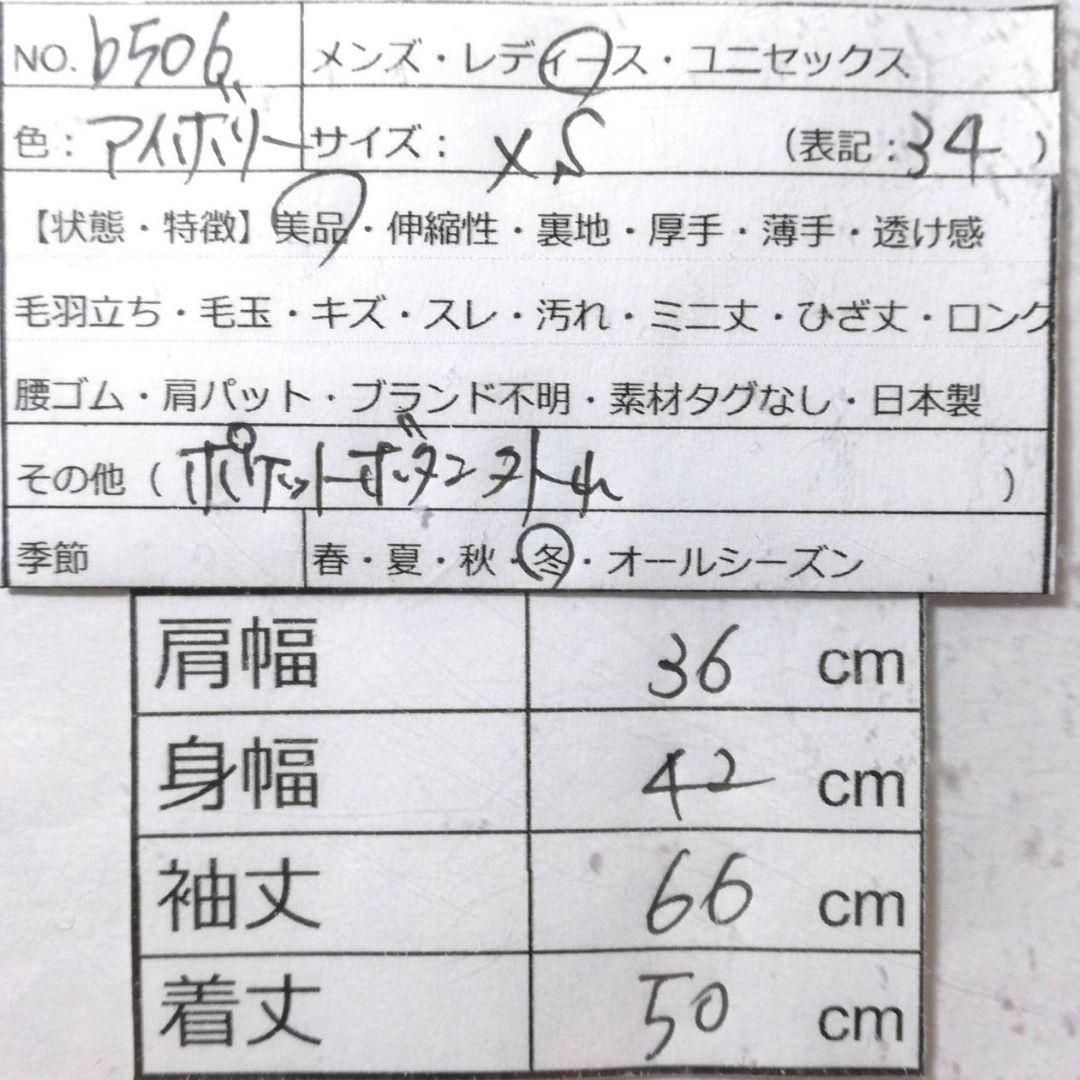 NO. b506 メンズ・レディース・ユニセックス
色：アイボリー サイズ： XS （表記：34 ）
【状態・特徴】美品・伸縮性・裏地・厚手・薄手・透け感
毛羽立ち・毛玉・キズ・スレ・汚れ・ミニ丈・ひざ丈・ロング
腰ゴム・肩パット・ブランド不明・素材タグなし・日本製
その他（ ポケット ボタン ）
季節 春・夏・秋・冬・オールシーズン
肩幅 36 cm
身幅 42 cm
袖丈 66 cm
着丈 50 cm